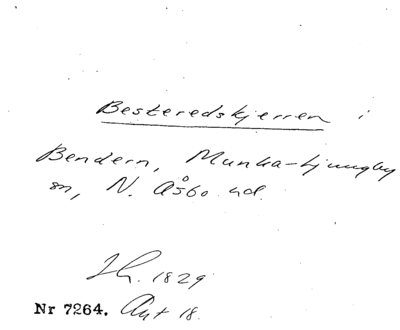 Besteredskjerren i
Bendern, Munka-Ljungby
sn, N. Åsbo hd.
Lh. 1829
Nr 7264. Akt 18.